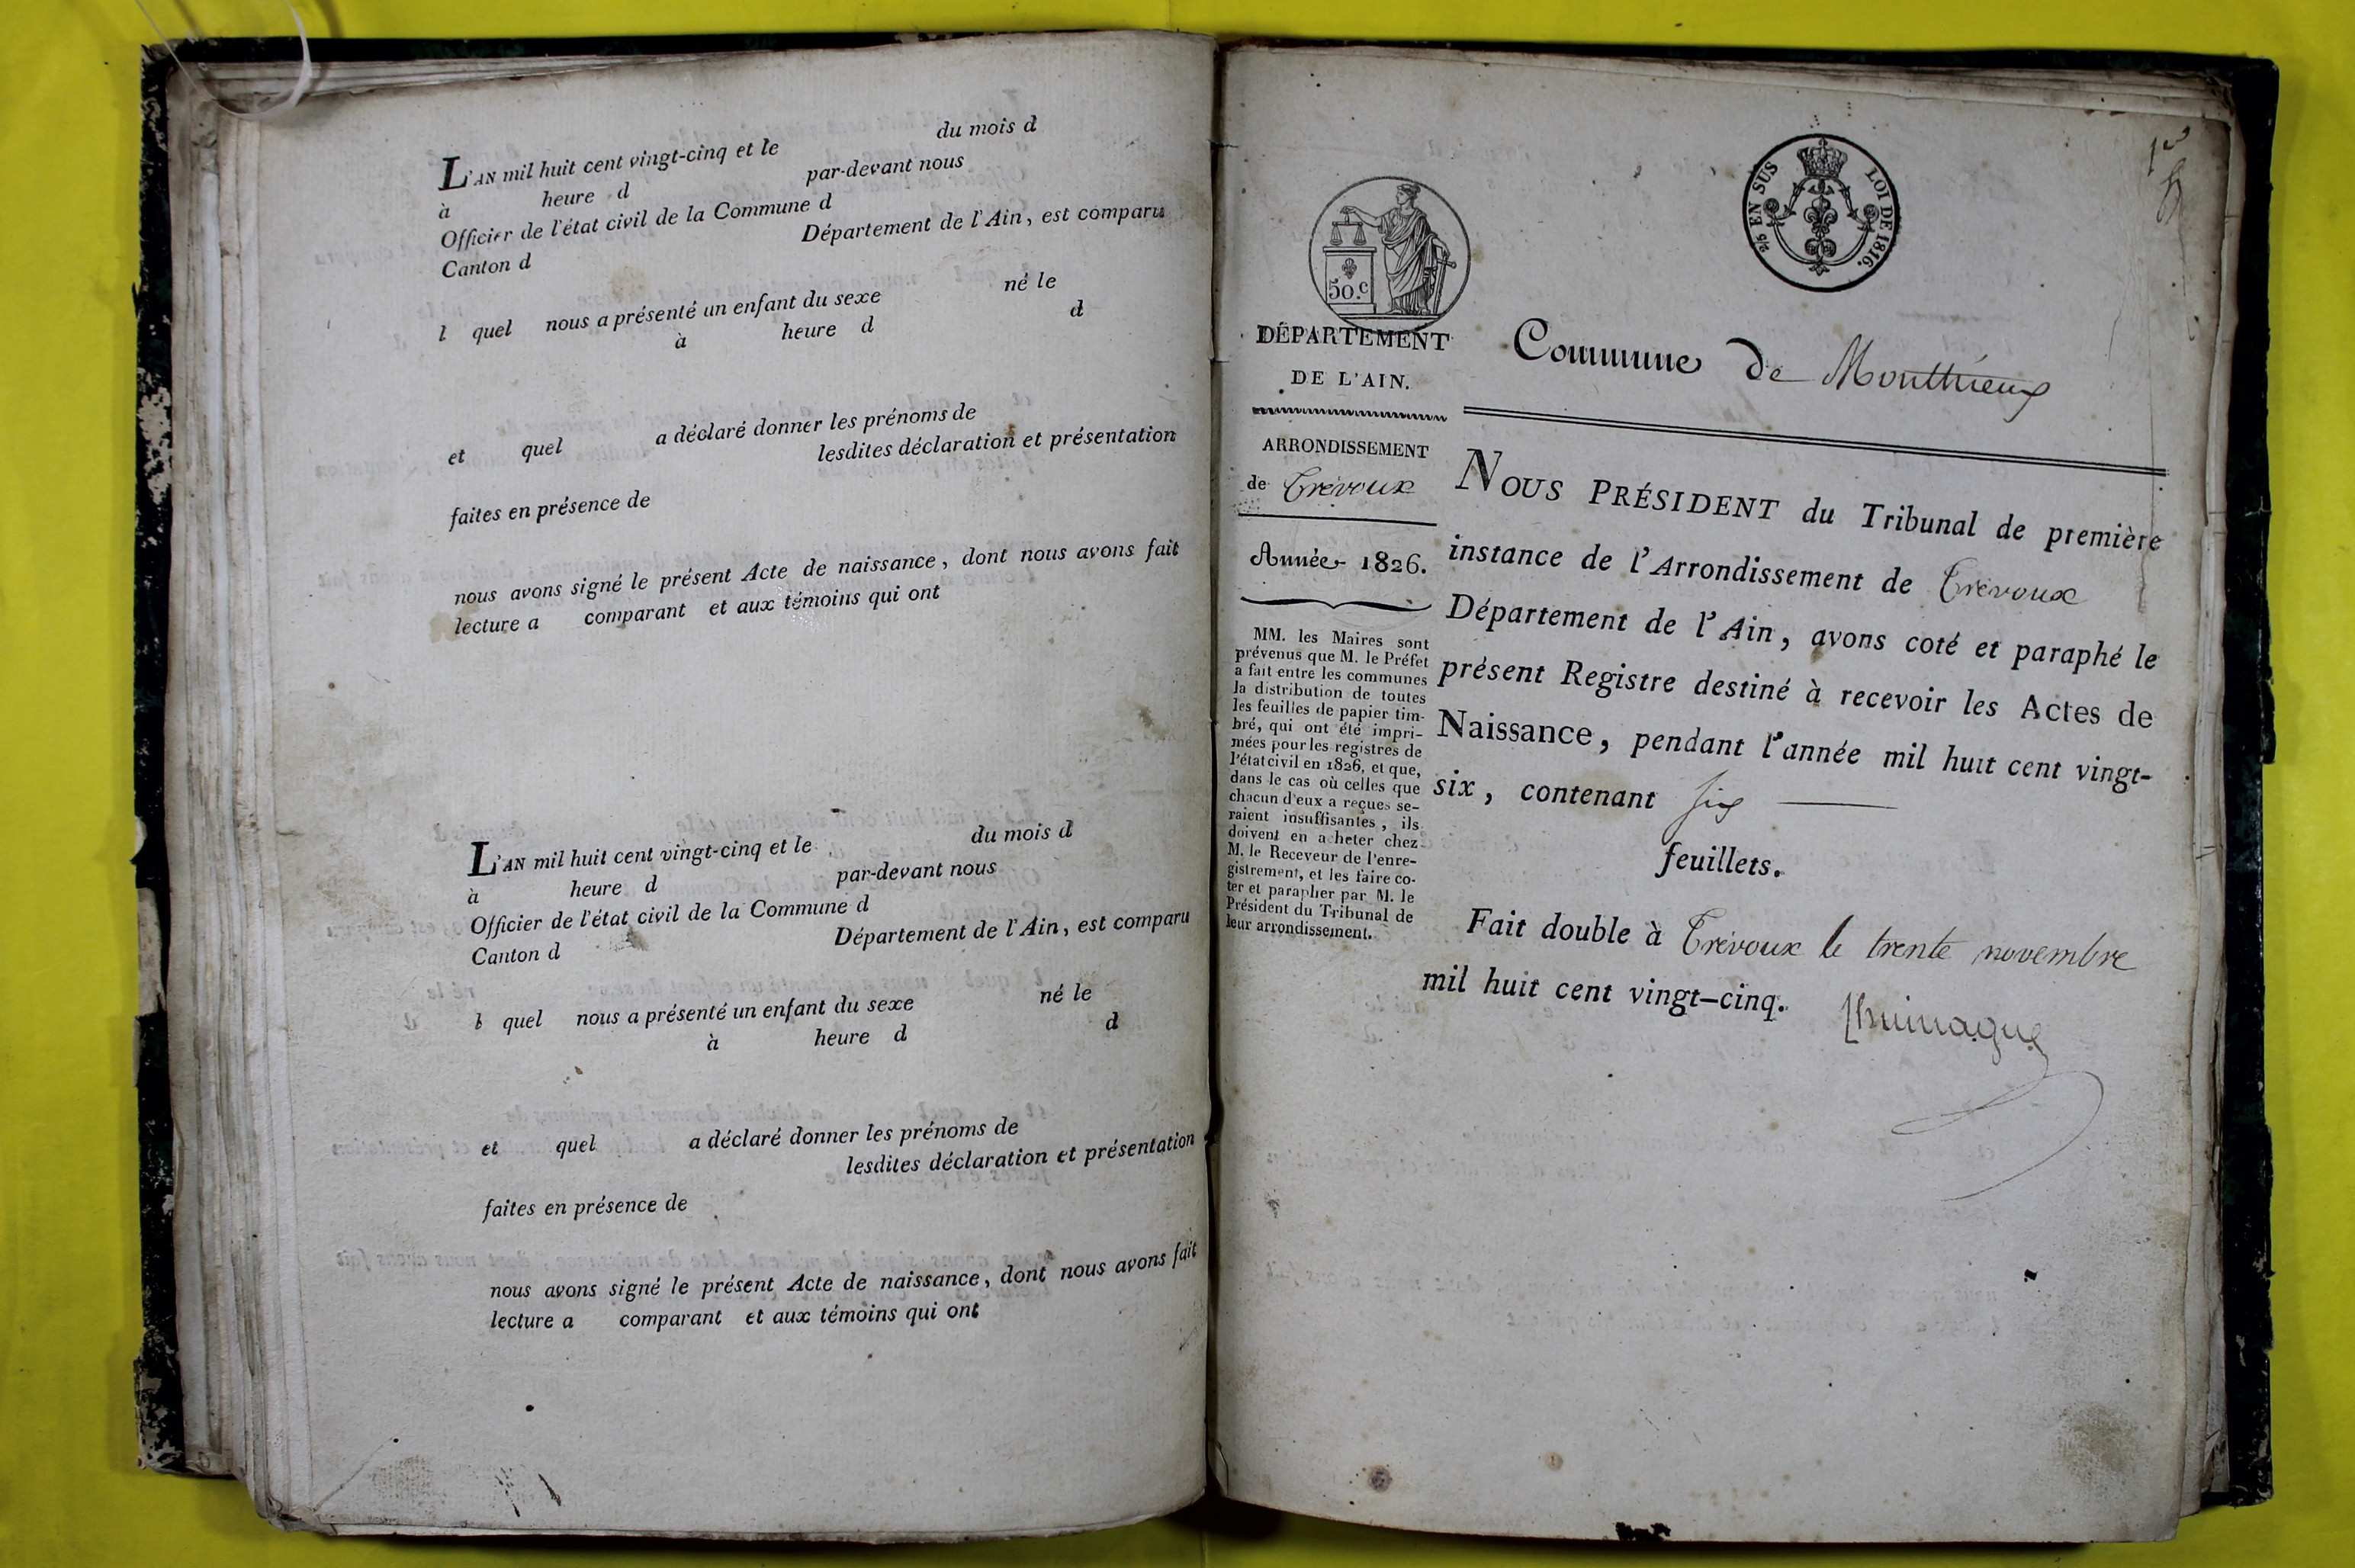 L'AN mil huit cent vingt-cinq et le du mois d
à heure d par-devant nous
Officier de l'état civil de la Commune d
Canton d Département de l'Ain, est comparu
l quel nous a présenté un enfant du sexe né le
à heure d d
et quel a déclaré donner les prénoms de
lesdites déclaration et présentation
faites en présence de
nous avons signé le présent Acte de naissance, dont nous avons fait
lecture a comparant et aux témoins qui ont
L'AN mil huit cent vingt-cinq et le du mois d
à heure d par-devant nous
Officier de l'état civil de la Commune d
Canton d Département de l'Ain, est comparu
l quel nous a présenté un enfant du sexe né le
à heure d d
et quel a déclaré donner les prénoms de
lesdites déclaration et présentation
faites en présence de
nous avons signé le présent Acte de naissance, dont nous avons fait
lecture a comparant et aux témoins qui ont
1er
EN SUS LOI DE 1816.
50.c
DÉPARTEMENT
DE L'AIN.
ARRONDISSEMENT
de Trévoux
Année 1826.
MM. les Maires sont
prévenus que M. le Préfet
a fait entre les communes
la distribution de toutes
les feuilles de papier tim-
bré, qui ont été impri-
mées pour les registres de
l'état civil en 1826, et que,
dans le cas où celles que
chacun d'eux a reçues se-
raient insuffisantes, ils
doivent en acheter chez
M. le Receveur de l'enre-
gistrement, et les faire co-
ter et parapher par M. le
Président du Tribunal de
leur arrondissement.
Commune de Monthieux
NOUS PRÉSIDENT du Tribunal de première
instance de l'Arrondissement de Trévoux
Département de l'Ain, avons coté et paraphé le
présent Registre destiné à recevoir les Actes de
Naissance, pendant l'année mil huit cent vingt-
six, contenant six
feuillets.
Fait double à Trévoux le trente novembre
mil huit cent vingt-cinq.